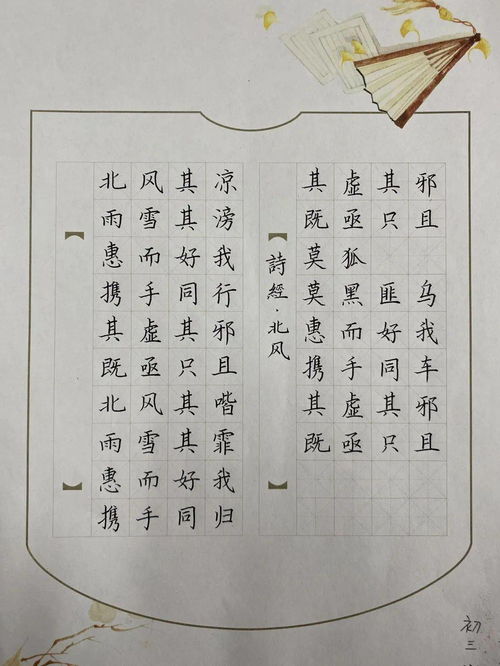 北风其凉
雨雪其滂
惠而好我
携手同行
其虚其邪
既亟只且
北风其喈
雨雪其霏
惠而好我
携手同归
詩經·北风
其虚其邪
既亟只且
莫狐
莫黑匪乌
惠而好我
携手同车
其虚其邪
既亟只且
初三